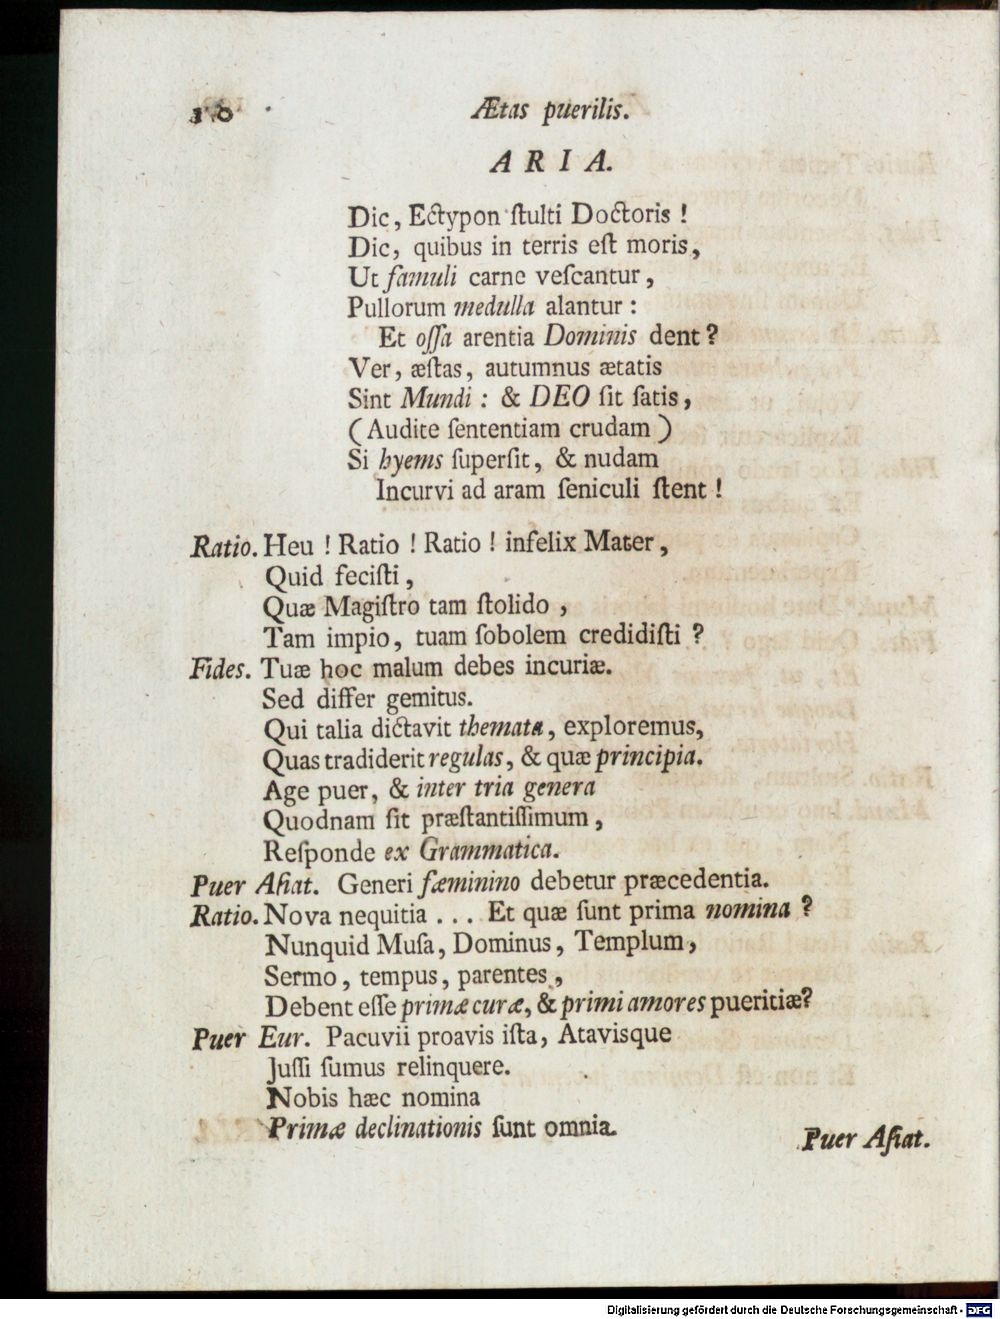 10 Ætas puerilis.
ARIA.
Dic, Ectypon ſtulti Doctoris !
Dic, quibus in terris eſt moris,
Ut famuli carne veſcantur,
Pullorum medulla alantur :
Et oſſa arentia Dominis dent ?
Ver, æſtas, autumnus ætatis
Sint Mundi : & DEO ſit ſatis,
( Audite ſententiam crudam )
Si hyems ſuperſit, & nudam
Incurvi ad aram ſeniculi ſtent !
Ratio. Heu ! Ratio ! Ratio ! infelix Mater,
Quid feciſti,
Quæ Magiſtro tam ſtolido,
Tam impio, tuam ſobolem credidiſti ?
Fides. Tuæ hoc malum debes incuriæ.
Sed differ gemitus.
Qui talia dictavit themata, exploremus,
Quas tradiderit regulas, & quæ principia.
Age puer, & inter tria genera
Quodnam ſit præſtantiſſimum,
Reſponde ex Grammatica.
Puer Aſiat. Generi fæminino debetur præcedentia.
Ratio. Nova nequitia . . . Et quæ ſunt prima nomina ?
Nunquid Muſa, Dominus, Templum,
Sermo, tempus, parentes,
Debent eſſe primæ curæ, & primi amores pueritiæ?
Puer Eur. Pacuvii proavis iſta, Atavisque
Juſſi ſumus relinquere.
Nobis hæc nomina
Primæ declinationis ſunt omnia.
Puer Aſiat.
Digitalisierung gefördert durch die Deutsche Forschungsgemeinschaft - DFG